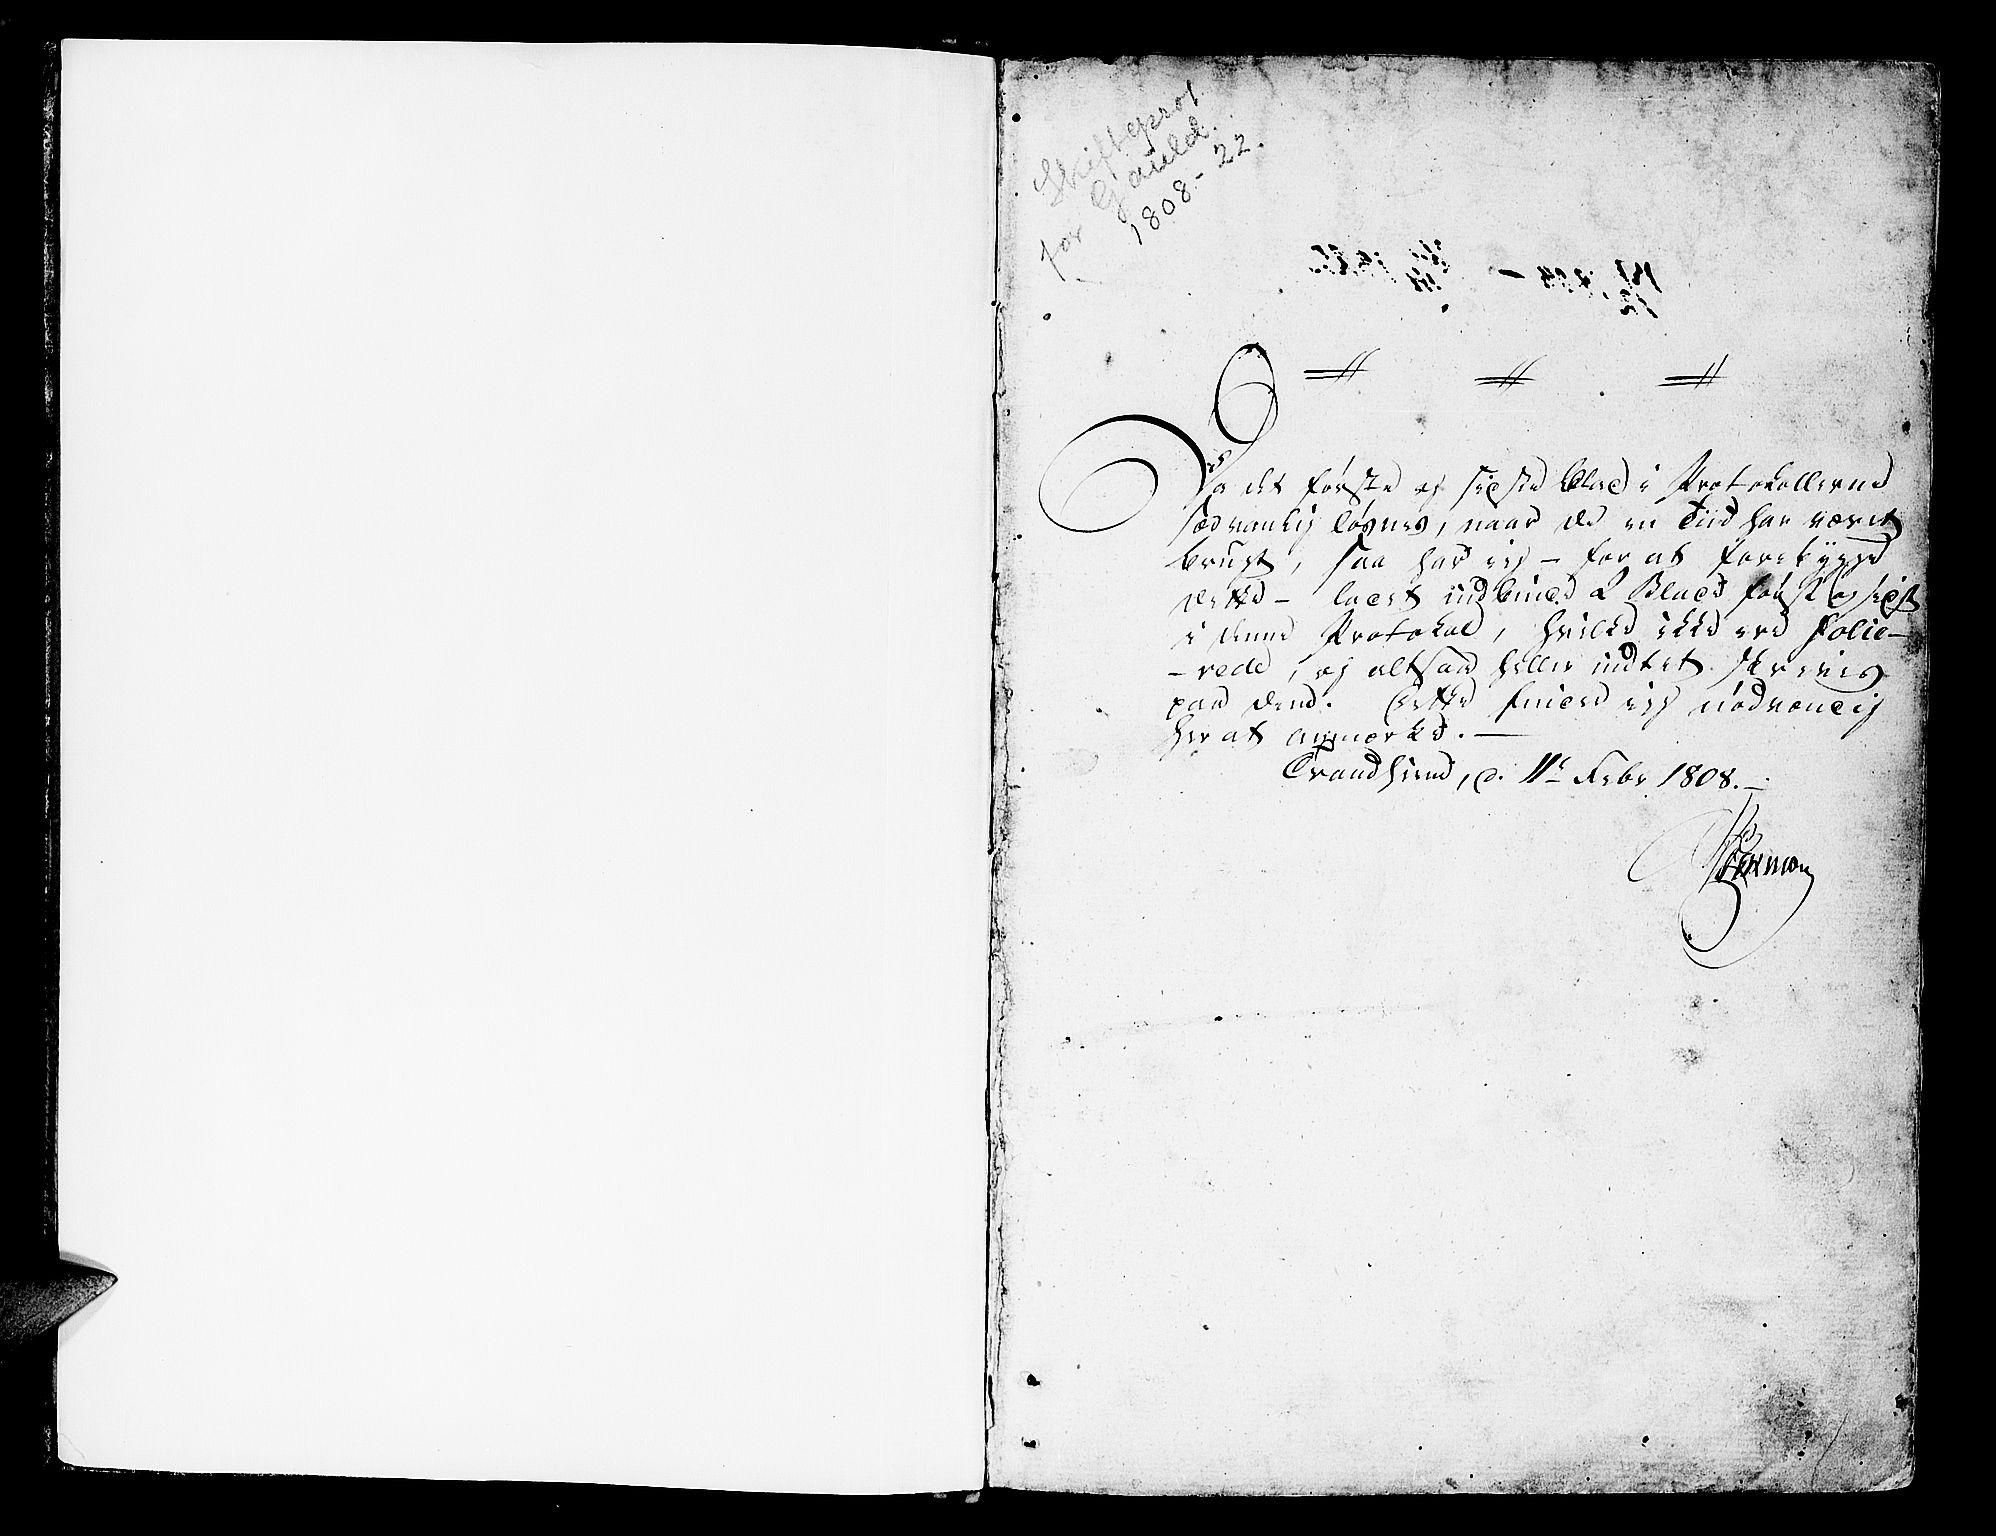 Skifteprot
for Gauld.
1808.-22.
Da det første og sidste Blad i Protokollerne
sædvanlig løsnes, naar de en Tiid har været
brugt, saa har jeg – for at forebygge
dette – ladet indbinde 2 Blade først og sidst
i denne Protokol, hvilke ikke ere folie-
-rede, og altsaa heller indtet skrives
paa dem. Dette finder jeg nødvendig
her at anmærke. —
Trondhiem, d. 11te Febr 1808. —